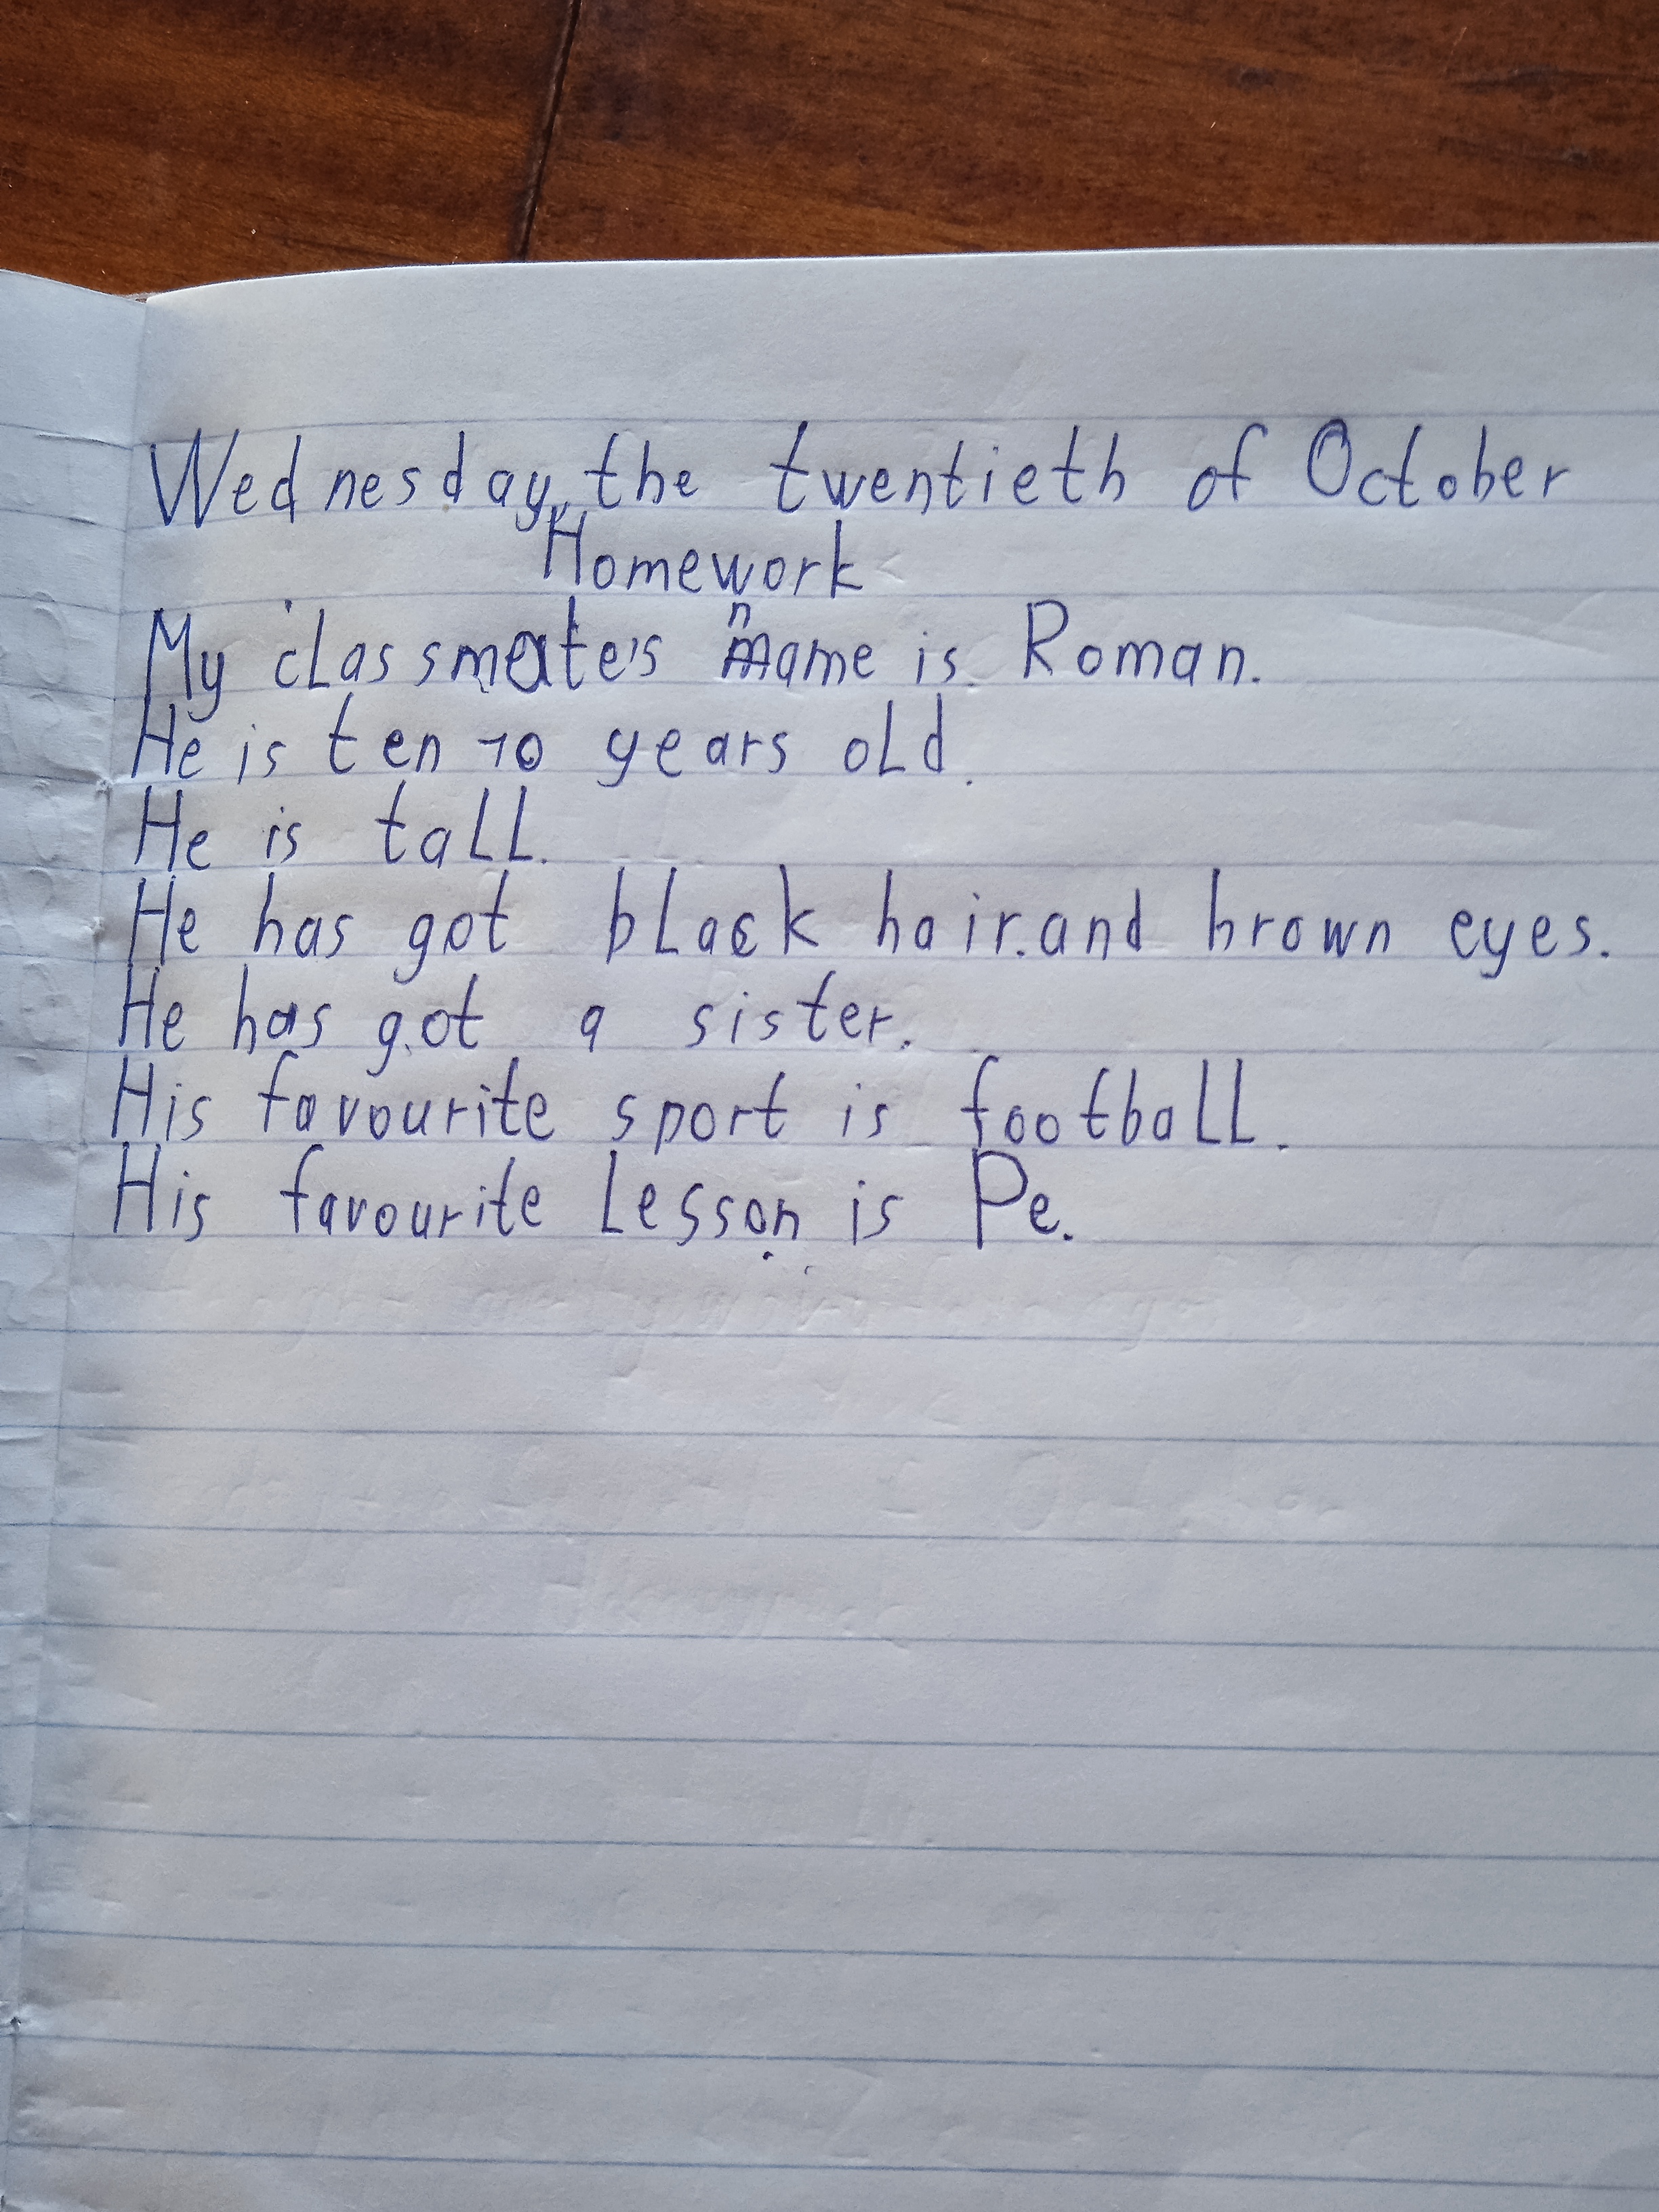 Wednesday, the twentieth of October
Homework
My classmate's name is Roman.
He is ten 10 years old.
He is tall.
He has got black hair.and brown eyes.
He has got a sister.
His favourite sport is football.
His favourite lesson is Pe.